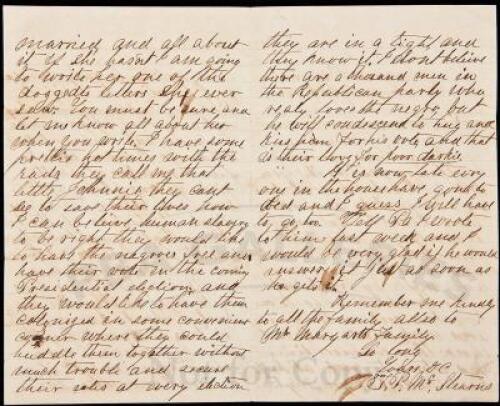 married and all about
it if she hasn't I am going
to write her one of the
doggedest letters she ever
saw. You must be sure and
let me know all about her
when you write. I have some
precious hot times with the
rads they call me that
little they cant
see to save their lives how
I can believe human slavery
to be right they would like
to have the negroes free and
have their vote in the coming
Presidential election, and
they would like to have them
colonized in some convenient
corner where they could
huddle them together without
much trouble and secure
their votes at every election
they are in a tight and
they know it. I dont believe
there are a thousand men in
the Republican party who
realy loves the negro, but
he will condescend to hug and
kiss him for his vote and that
is their love for poor darkie
It is now late evry
one in the house have gone to
bed and I guess I will have
to go too. Well Pa wrote
to them last week and I
would be very glad if he would
answer it just as soon as
he gets it.
Remember me kindly
to all the family also to
Mr Margarts Family
So long
Yours, &c
P. Mc. Stearns